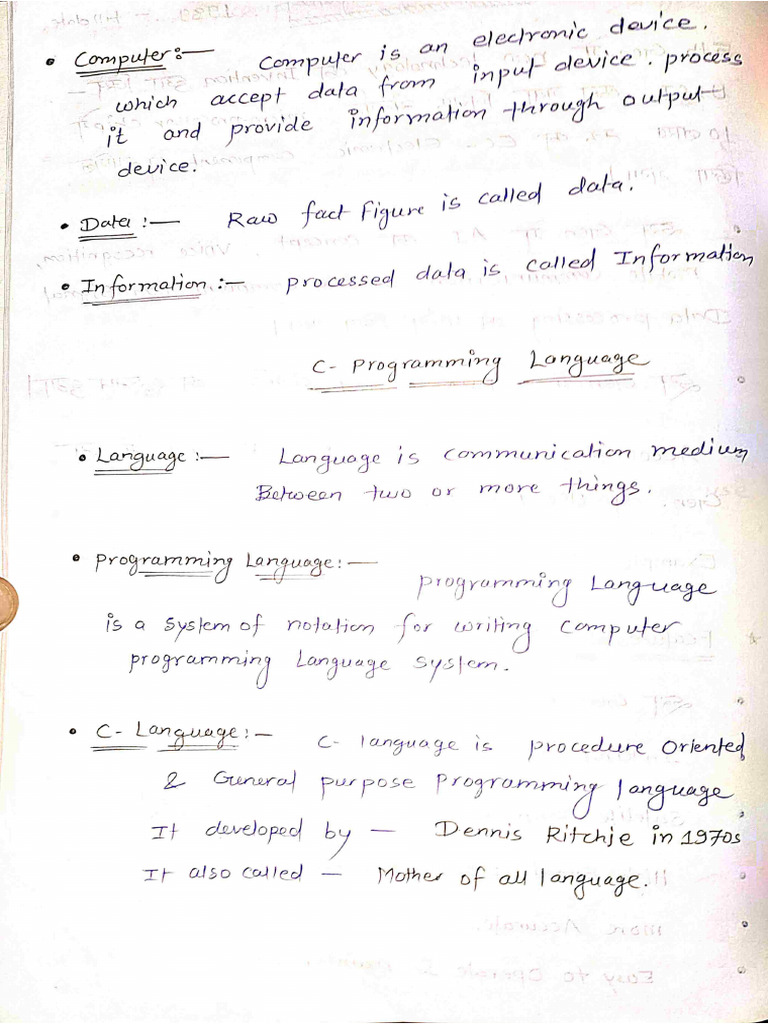 • Computer:— Computer is an electronic device.
which accept data from input device. process
it and provide information through output
device.
• Data :— Raw fact Figure is called data.
• Information :— processed data is called Information
C- Programming Language
• Language :— Language is communication medium
Between two or more things.
• Programming Language:— programming Language
is a system of notation for writing computer
programming Language system.
• C- Language:— C- language is procedure Oriented
& General purpose programming language
It developed by — Dennis Ritchie in 1970s
It also called — Mother of all language.